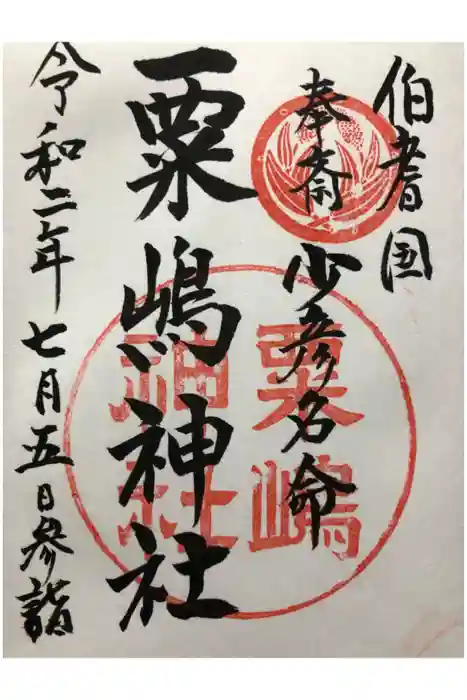 伯耆国
奉斎 少彦名命
粟嶋神社
令和二年七月五日参詣
粟嶋
神社